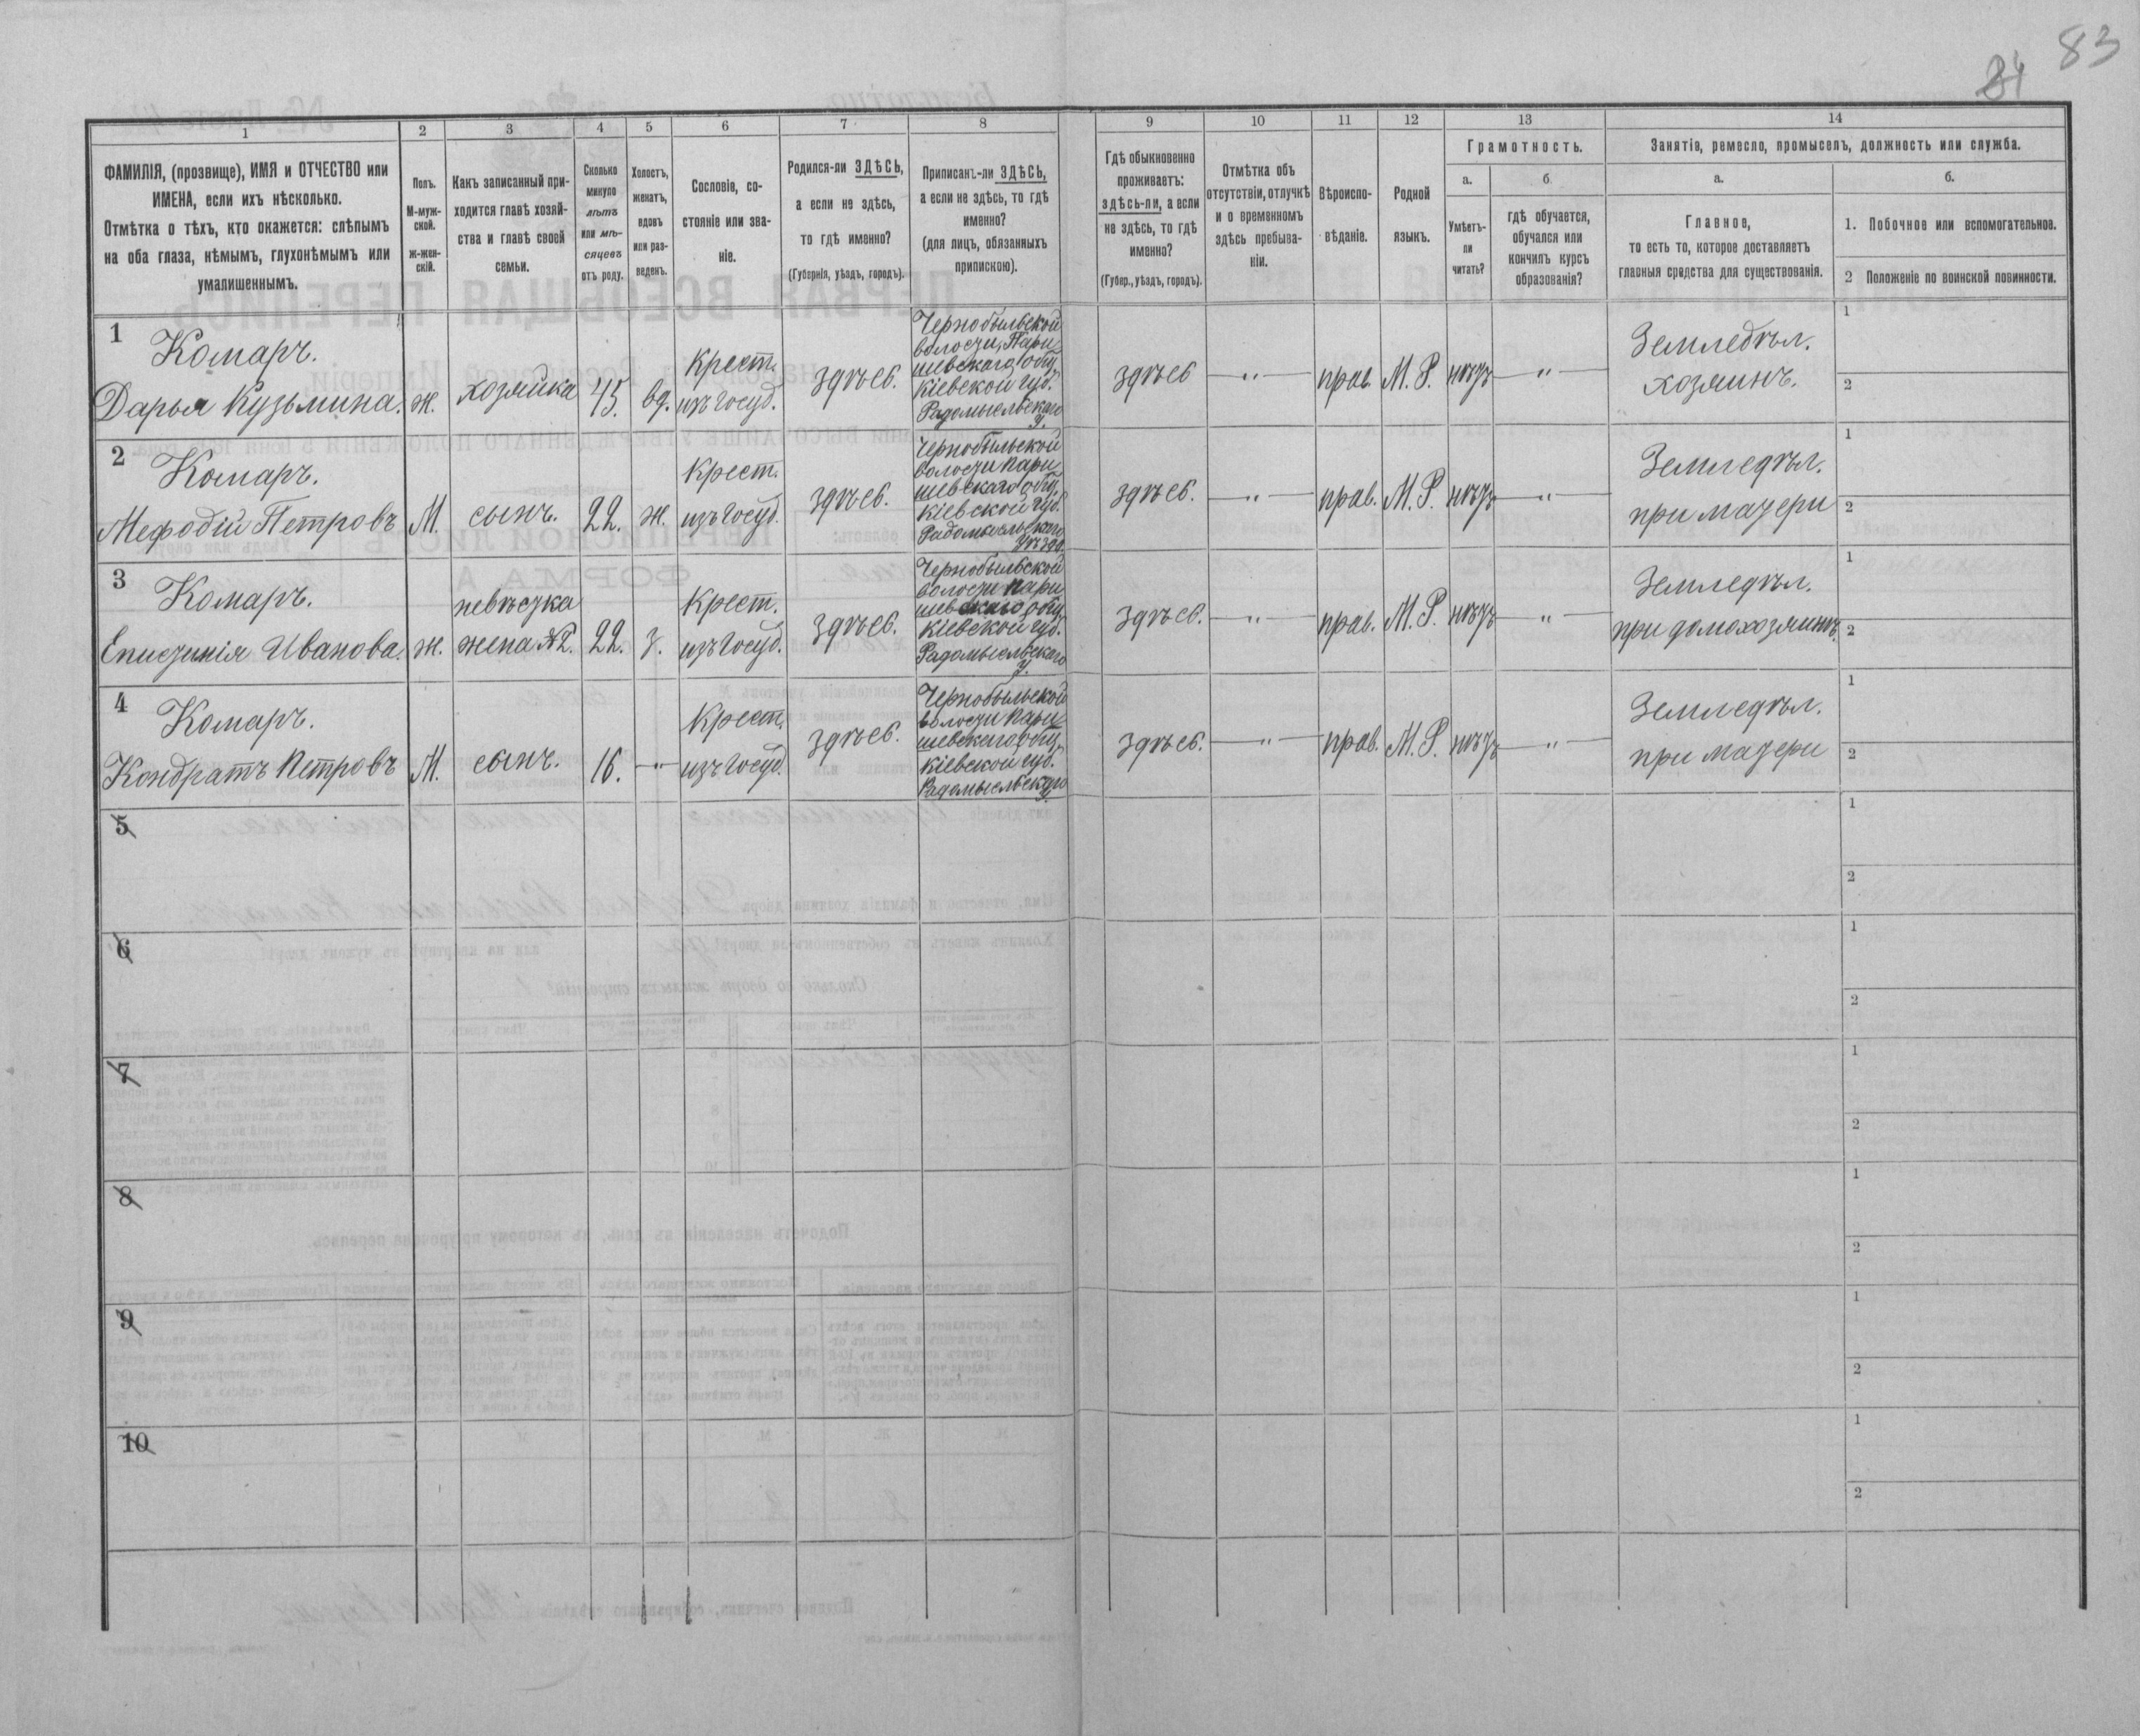 83
1
2
3
4
5
6
7
8
9
10
11
12
13
14
ФАМИЛІЯ, (прозвище), ИМЯ и ОТЧЕСТВО или
ИМЕНА, если ихъ нѣсколько.
Отмѣтка о тѣхъ, кто окажется: слѣпымъ
на оба глаза, нѣмымъ, глухонѣмымъ или
умалишеннымъ.
Полъ.
М-муж-
ской.
ж-жен-
скій.
Какъ записанный при-
ходится главѣ хозяй-
ства и главѣ своей
семьи.
Сколько
минуло
лѣтъ
или мѣ-
сяцевъ
отъ роду.
Холостъ,
женатъ,
вдовъ
или раз-
веденъ.
Сословіе, со-
стояніе или зва-
ніе.
Родился-ли ЗДѢСЬ,
а если не здѣсь,
то гдѣ именно?
(Губернія, уѣздъ, городъ).
Приписанъ-ли ЗДѢСЬ,
а если не здѣсь, то гдѣ
именно?
(для лицъ, обязанныхъ
припискою).
Гдѣ обыкновенно
проживаетъ:
здѣсь-ли, а если
не здѣсь, то гдѣ
именно?
(Губер., уѣздъ, городъ).
Отмѣтка объ
отсутствіи, отлучкѣ
и о временномъ
здѣсь пребыва-
ніи.
Вѣроиспо-
вѣданіе.
Родной
языкъ.
Грамотность.
а.
Умѣетъ-
ли
читать?
б.
гдѣ обучается,
обучался или
кончилъ курсъ
образованія?
Занятіе, ремесло, промыселъ, должность или служба.
а.
Главное,
то есть то, которое доставляетъ
главныя средства для существованія.
б.
1. Побочное или вспомогательное.
2 Положеніе по воинской повинности.
1
Комаръ.
Дарья Кузьмина.
ж.
хозяйка
45.
вд.
крест.
изъ госуд.
здѣсь.
Чернобыльской
волости, Пари
шевскаго общ.
Кіевской губ.
Радомысльскаго
у.
здѣсь
— „ —
прав.
М. Р.
нѣтъ
— „ —
Земледѣл.
хозяинъ.
1
2
2
Комаръ.
Мефодій Петровъ
М.
сынъ.
22.
ж.
крест.
изъ госуд.
здѣсь.
Чернобыльской
волости Пари
шевскаго общ.
Кіевской губ.
Радомысльскаго
уѣзда
здѣсь.
— „ —
прав.
М. Р.
нѣтъ
— „ —
Земледѣл.
при матери
1
2
3
Комаръ.
Епистинія Иванова.
ж.
невѣстка
жена №2.
22.
з.
крест.
изъ госуд.
здѣсь.
Чернобыльской
волости Пари
шевскаго общ.
Кіевской губ.
Радомысльскаго
у.
здѣсь.
— „ —
прав.
М. Р.
нѣтъ
— „ —
Земледѣл.
при домохозяинѣ.
1
2
4
Комаръ.
Кондратъ Петровъ
М.
сынъ.
16.
— „ —
крест.
изъ госуд.
здѣсь.
Чернобыльской
волости Пари
шевскаго общ.
Кіевской губ.
Радомысльскаго
у.
здѣсь.
— „ —
прав.
М. Р.
нѣтъ
— „ —
Земледѣл.
при матери
1
2
5
1
2
6
1
2
7
1
2
8
1
2
9
1
2
10
1
2